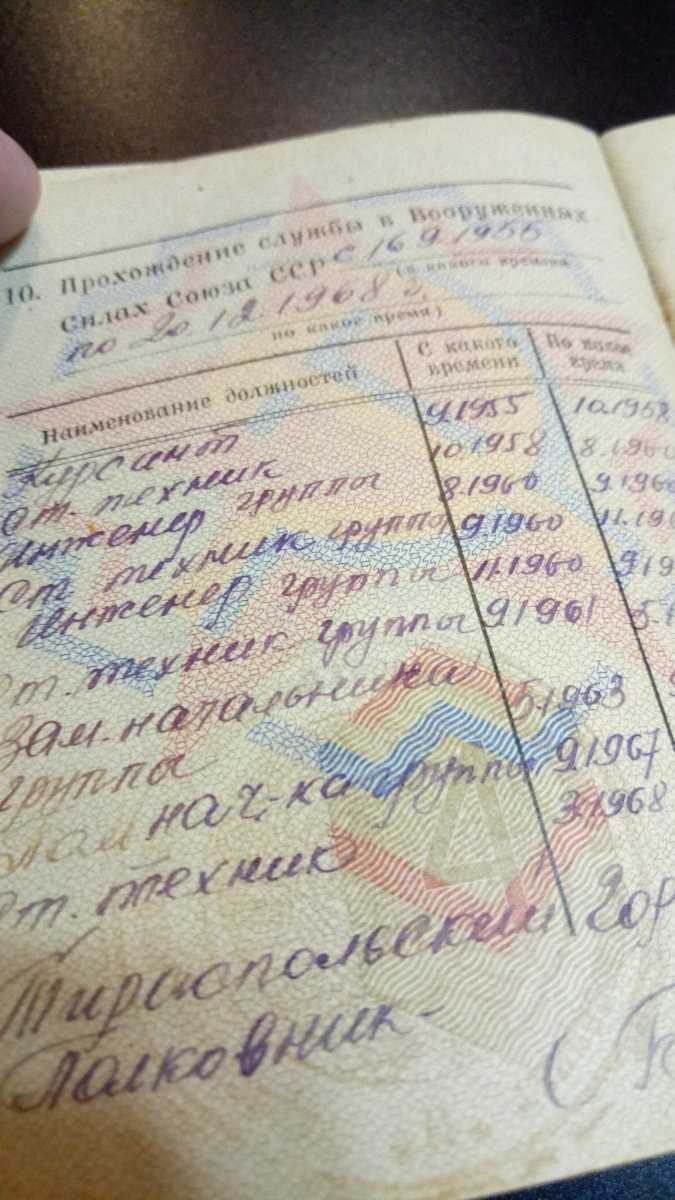 10. Прохождение службы в Вооруженных
Силах Союза ССР с 16.9.1955
(с какого времени
по 20.12.1968 г.
по какое время)
Наименование должностей С какого времени По какое время
Курсант 9.1955 10.1958
Ст. техник 10.1958 8.1960
Инженер группы 8.1960 9.1960
Ст. техник группы 9.1960 11.19
Инженер группы 11.1960 9.19
Ст. техник группы 9.1961 5.
Зам. начальника
группы 5.1963
нач-ка группы 9.1967
Ст. техник 3.1968
Тираспольский гор
Полковник -